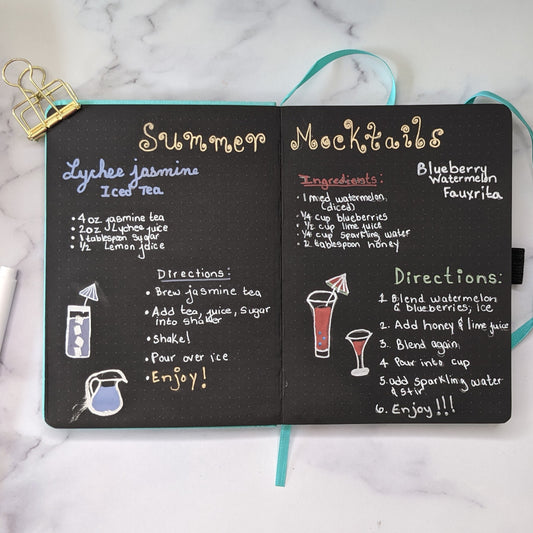 Summer Mocktails
Lychee jasmine
Iced Tea
• 4 oz jasmine tea
• 2 oz Lychee juice
• 1 tablespoon sugar
• 1/2 Lemon juice
Directions:
• Brew jasmine tea
• Add tea, juice, sugar
into shaker
• Shake!
• Pour over ice
• Enjoy!
Blueberry
Watermelon
Fauxrita
Ingredients:
• 1 med watermelon,
(diced)
• 1/4 cup blueberries
• 1/2 cup lime juice
• 1/4 cup sparkling water
tablespoon honey
Directions:
1. Blend watermelon
& blueberries, ice
2. Add honey & lime juice
3. Blend again
4 Pour into cup
5. add sparkling water
& stir
6. Enjoy!!!